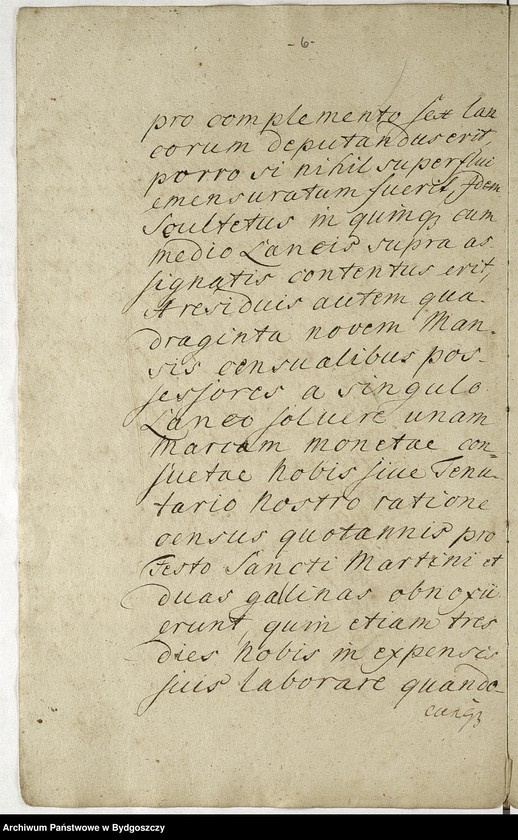 -6-
pro complemento sex lan
eorum deputandus erit,
porro si nihil superflui
emensuratum fuerit, Idem
Scultetus in quinq cum
medio Laneis supra as-
signatis contentus erit,
A residuis autem qua-
draginta novem Man-
sis censualibus pos-
sessores a singulo
Laneo soluere unam
Marcam monetae con=
suetae nobis siue Tenu-
tario nostro ratione
census quotannis pro
Festo Sancti Martini et
duas gallinas obnoxii
erunt, quin etiam tres
dies nobis in expensis
suis laborare quando-
cunq
Archiwum Państwowe w Bydgoszczy